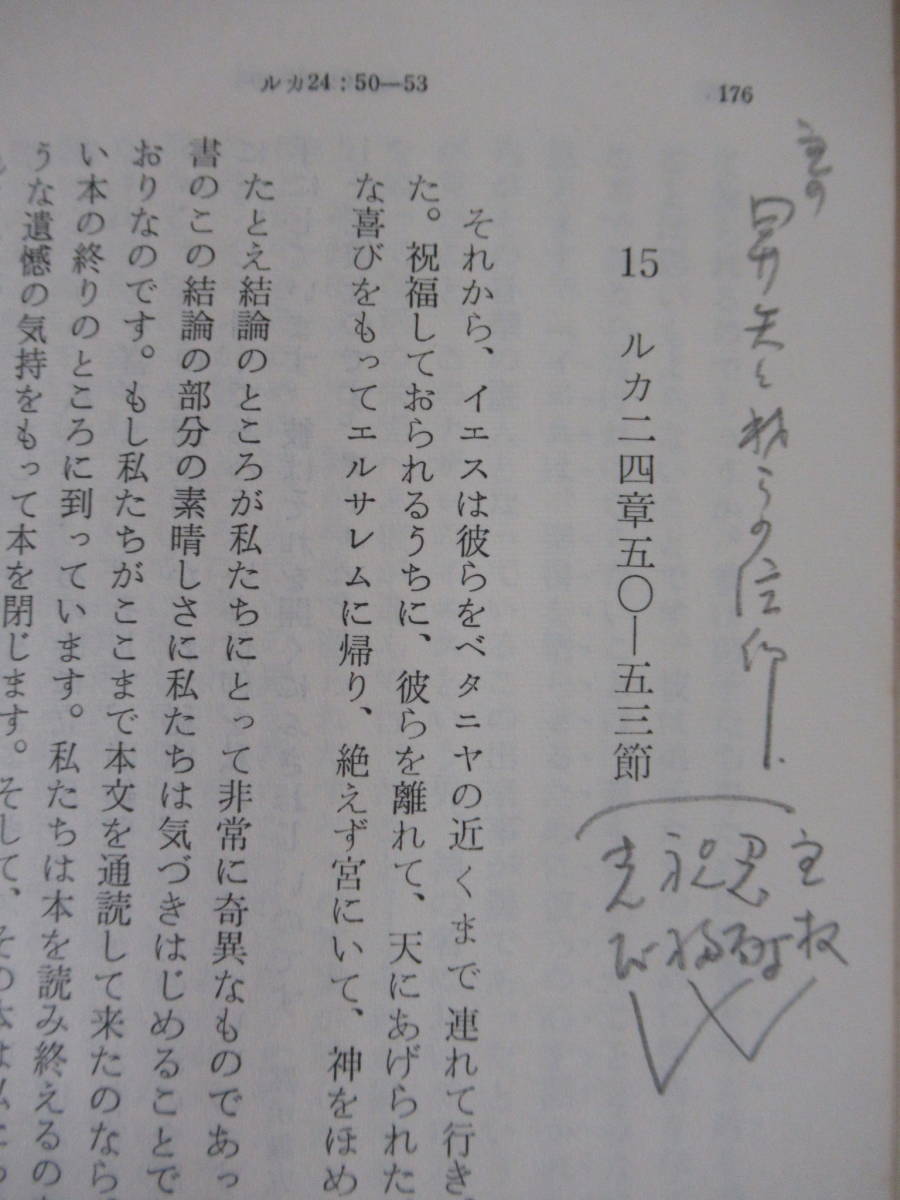 ルカ24：50—53
176
主の昇天と私らの信仰
15 ルカ二四章五〇—五三節
主
恩
祝福
喜び
それから、イエスは彼らをベタニヤの近くまで連れて行き、
た。祝福しておられるうちに、彼らを離れて、天にあげられた
な喜びをもってエルサレムに帰り、絶えず宮にいて、神をほめ
たとえ結論のところが私たちにとって非常に奇異なものであっ
書のこの結論の部分の素晴しさに私たちは気づきはじめることで
おりなのです。もし私たちがここまで本文を通読して来たのなら
い本の終りのところに到っています。私たちは本を読み終えるの
うな遺憾の気持をもって本を閉じます。そして、その本は私にっ